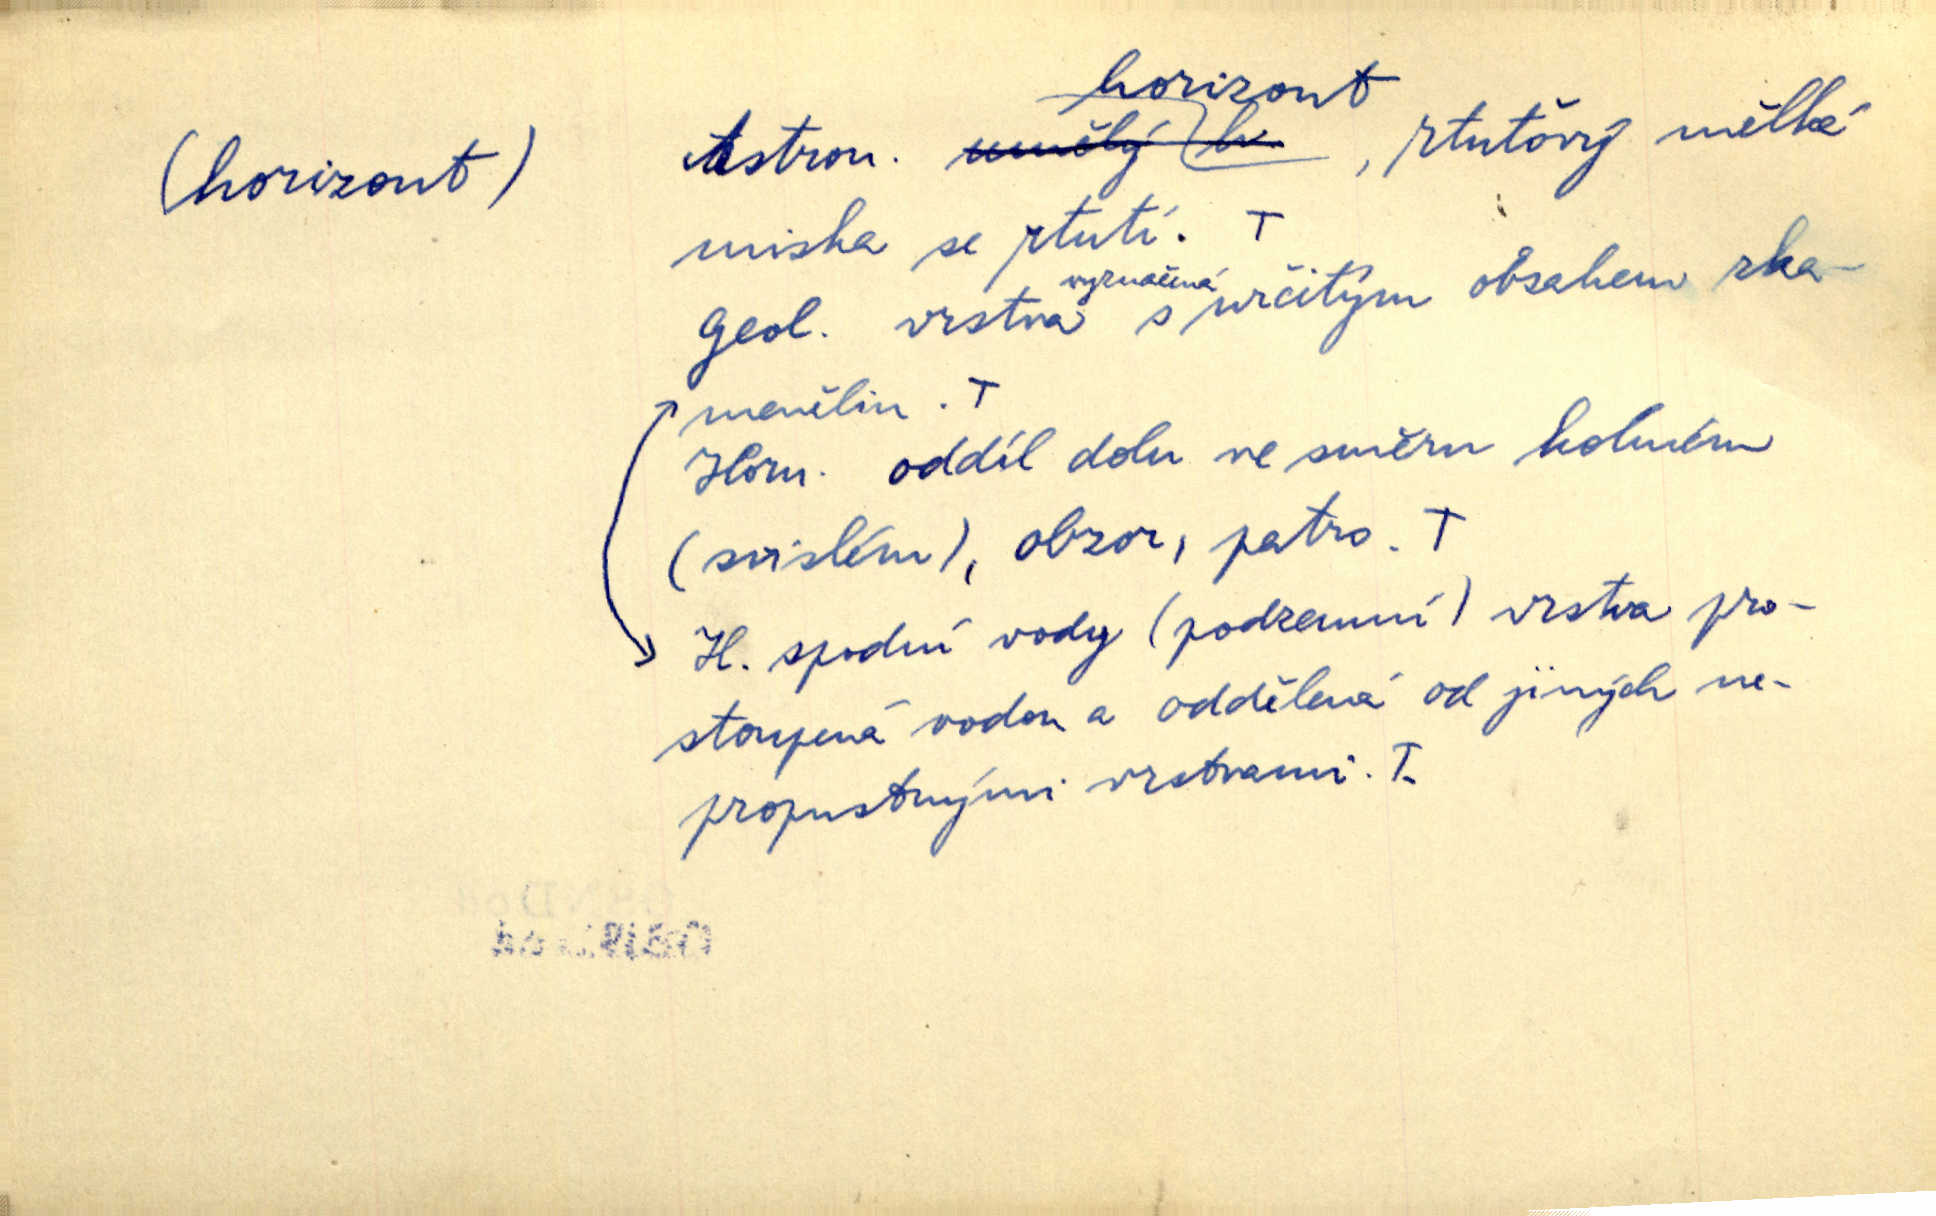 horizont
(horizont) Astron. umělý h. , rtuťový mělká
miska se rtutí. T
vyznačená
Geol. vrstva s určitým obsahem zka-
menělin. T
Horn. oddíl dolu ve směru kolmém
(svislém), obzor, patro. T
H. spodní vody (podzemní) vrstva pro-
stoupená vodou a oddělená od jiných ne-
propustnými vrstvami. T.